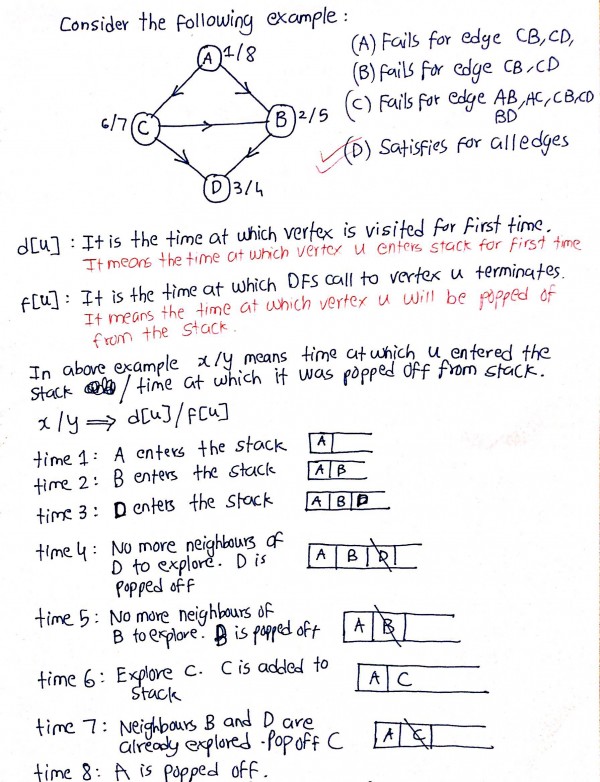 Consider the following example:
A 1/8
6/7 C
B 2/5
D 3/4
(A) Fails for edge CB, CD,
(B) fails for edge CB, CD
(C) Fails for edge AB, AC, CB, CD
BD
(D) Satisfies for all edges
d[u] : It is the time at which vertex is visited for first time.
It means the time at which vertex u enters stack for first time
f[u] : It is the time at which DFS call to vertex u terminates.
It means the time at which vertex u will be popped of
from the stack.
In above example x/y means time at which u entered the
stack / time at which it was popped off from stack.
x/y ⟹ d[u]/f[u]
time 1: A enters the stack
A
time 2: B enters the stack
A B
time 3: D enters the stack
A B D
time 4: No more neighbours of
D to explore. D is
popped off
A B D
time 5: No more neighbours of
B to explore. B is popped off
A B
time 6: Explore C. C is added to
stack
A C
time 7: Neighbours B and D are
already explored. Pop off C
A C
time 8: A is popped off.